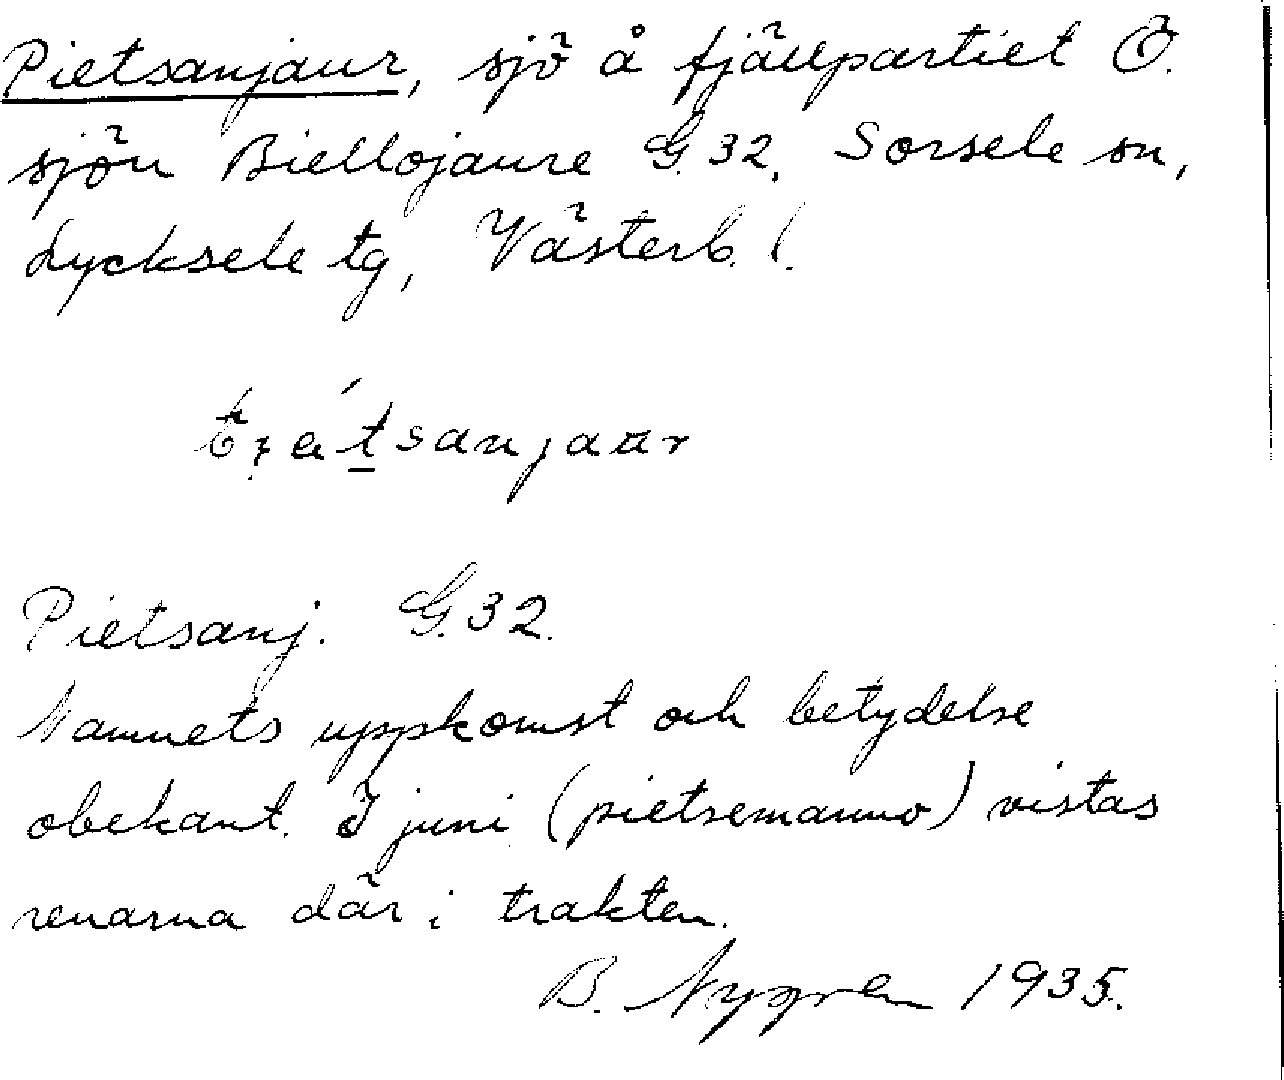 Pietsanjaur, sjö å fjällpartiet Ö.
sjön Biellojaure G.32, Sorsele sn,
Lycksele tg, Västerb. l.
Pietsanj. G.32.
Namnets uppkomst och betydelse
obekant. I juni (pietsemanno) vistas
renarna där i trakten.
B. Nygren 1935.